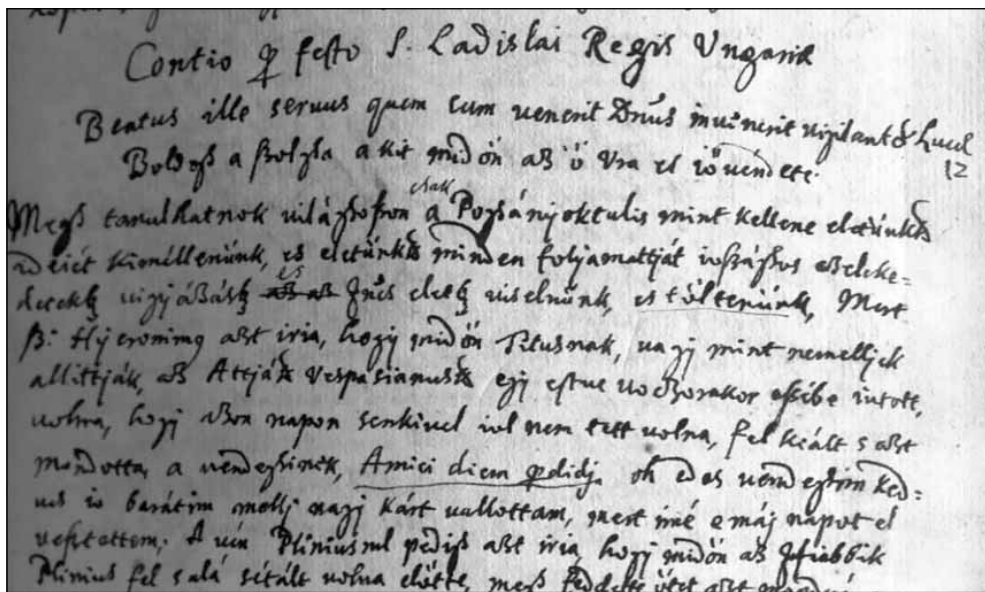 Contio ꝑ festo S. Ladislai Regis Ungariæ
Beatus ille servus quem cum venerit Dnus invenerit vigilantem Lucæ
12
Boldogh a szolgha a kit midön az ö Ura el iövendete
csak
Megh tanulhatnok világhossan a Poghányoktulis mint kellene életünknek
ideiét kimillenünk, es életünknek minden folyamattját iosághos cseleke-
detekkel vigjázásk es Jncs elettel viselnünk, es töltenünk, Mert
Sz: Hyeronimus azt iria, hogj midön Titusnak, vagj mint nemelljek
allittják, az Attjának Vespasianusnak egj estve vaczorakor eszibe iutott
volna, hogj azon napon senkivel iol nem tett volna, fel kiált s azt
mondotta, a vendeghinek, Amici diem ꝑdidj. oh edes vendeghim ked=
ves io barátim mellj nagj kárt vallottam, mert imé e máj napot el
vesztettem. A vén Pliniusrul pedigh azt iria, hogj midön az Ifiabbik
Plinius fel s alá sétált volna elötte, megh feddette ötet azt